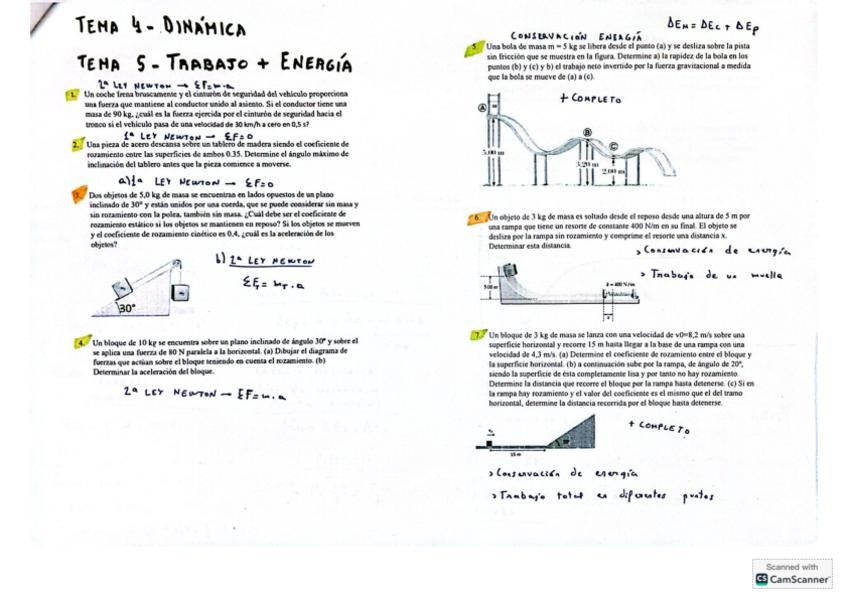 TEMA 4 - DINÁMICA
TEMA 5 - TRABAJO + ENERGÍA
2ª LEY NEWTON → ΣF=m·a
1. Un coche frena bruscamente y el cinturón de seguridad del vehículo proporciona
una fuerza que mantiene al conductor unido al asiento. Si el conductor tiene una
masa de 90 kg, ¿cuál es la fuerza ejercida por el cinturón de seguridad hacia el
tronco si el vehículo pasa de una velocidad de 30 km/h a cero en 0,5 s?
1ª LEY NEWTON → ΣF=0
2. Una pieza de acero descansa sobre un tablero de madera siendo el coeficiente de
rozamiento entre las superficies de ambos 0.35. Determine el ángulo máximo de
inclinación del tablero antes que la pieza comience a moverse.
a) 1ª LEY NEWTON → ΣF=0
3. Dos objetos de 5,0 kg de masa se encuentran en lados opuestos de un plano
inclinado de 30º y están unidos por una cuerda, que se puede considerar sin masa y
sin rozamiento con la polea, también sin masa. ¿Cuál debe ser el coeficiente de
rozamiento estático si los objetos se mantienen en reposo? Si los objetos se mueven
y el coeficiente de rozamiento cinético es 0,4, ¿cuál es la aceleración de los
objetos?
b) 2ª LEY NEWTON
30°
4. Un bloque de 10 kg se encuentra sobre un plano inclinado de ángulo 30º y sobre el
se aplica una fuerza de 80 N paralela a la horizontal. (a) Dibujar el diagrama de
fuerzas que actúan sobre el bloque teniendo en cuenta el rozamiento. (b)
Determinar la aceleración del bloque.
2ª LEY NEWTON → ΣF=m·a
ΔEm = ΔEc + ΔEp
CONSERVACIÓN ENERGÍA
5. Una bola de masa m = 5 kg se libera desde el punto (a) y se desliza sobre la pista
sin fricción que se muestra en la figura. Determine a) la rapidez de la bola en los
puntos (b) y (c) y b) el trabajo neto invertido por la fuerza gravitacional a medida
que la bola se mueve de (a) a (c).
+ COMPLETO
A
B
C
5.00 m
3.20 m
2.00 m
6. Un objeto de 3 kg de masa es soltado desde el reposo desde una altura de 5 m por
una rampa que tiene un resorte de constante 400 N/m en su final. El objeto se
desliza por la rampa sin rozamiento y comprime el resorte una distancia x.
Determinar esta distancia.
> Conservación de energía
> Trabajo de un muelle
7. Un bloque de 3 kg de masa se lanza con una velocidad de v0=8,2 m/s sobre una
superficie horizontal y recorre 15 m hasta llegar a la base de una rampa con una
velocidad de 4,3 m/s. (a) Determine el coeficiente de rozamiento entre el bloque y
la superficie horizontal. (b) a continuación sube por la rampa, de ángulo de 20º,
siendo la superficie de ésta completamente lisa y por tanto no hay rozamiento.
Determine la distancia que recorre el bloque por la rampa hasta detenerse. (c) Si en
la rampa hay rozamiento y el valor del coeficiente es el mismo que el del tramo
horizontal, determine la distancia recorrida por el bloque hasta detenerse.
+ COMPLETO
15 m
> Conservación de energía
> Trabajo total en diferentes puntos
Scanned with
CS CamScanner